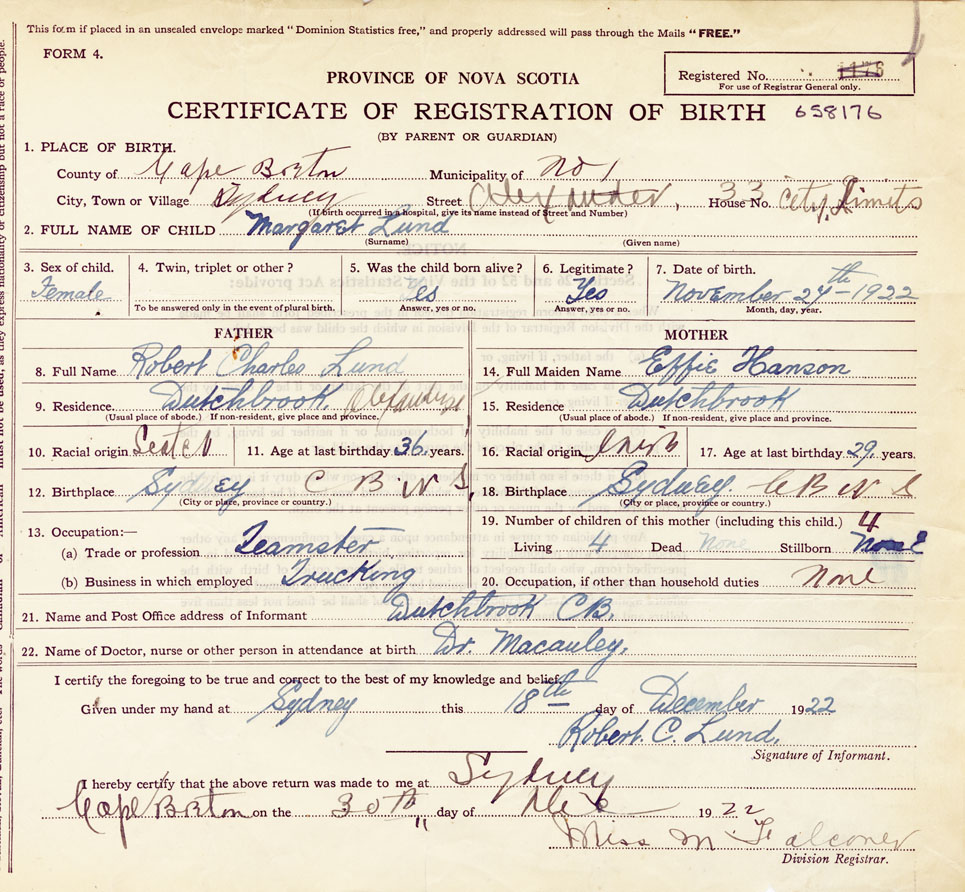 This form if placed in an unsealed envelope marked "Dominion Statistics free," and properly addressed will pass through the Mails "FREE."
FORM 4.
PROVINCE OF NOVA SCOTIA
Registered No. 1176
For use of Registrar General only.
CERTIFICATE OF REGISTRATION OF BIRTH 658176
(BY PARENT OR GUARDIAN)
1. PLACE OF BIRTH.
County of Cape Breton Municipality of No 1
City, Town or Village Sydney Street Alexander, House No. 33 City Limits
(If birth occurred in a hospital, give its name instead of Street and Number)
2. FULL NAME OF CHILD Margaret Lund
(Surname) (Given name)
3. Sex of child. 4. Twin, triplet or other? 5. Was the child born alive? 6. Legitimate? 7. Date of birth.
Female Yes Yes November 27th - 1922
To be answered only in the event of plural birth. Answer, yes or no. Answer, yes or no. Month, day, year.
FATHER MOTHER
8. Full Name Robert Charles Lund 14. Full Maiden Name Effie Hanson
9. Residence Dutchbrook 15. Residence Dutchbrook
(Usual place of abode.) If non-resident, give place and province. (Usual place of abode.) If non-resident, give place and province.
10. Racial origin Scotch 11. Age at last birthday 36 years. 16. Racial origin Irish 17. Age at last birthday 29 years.
12. Birthplace Sydney C B N S 18. Birthplace Sydney. C B N S
(City or place, province or country.) (City or place, province or country.)
13. Occupation:— 19. Number of children of this mother (including this child.) 4
(a) Trade or profession Teamster Living 4 Dead None Stillborn None
(b) Business in which employed Trucking 20. Occupation, if other than household duties None
21. Name and Post Office address of Informant Dutchbrook CB.
22. Name of Doctor, nurse or other person in attendance at birth Dr. Macauley.
I certify the foregoing to be true and correct to the best of my knowledge and belief.
Given under my hand at Sydney this 18th day of December 1922
Robert C. Lund.
Signature of Informant.
I hereby certify that the above return was made to me at Sydney
Cape Breton on the 30th day of Dec 1922
Miss M Falconer
Division Registrar.